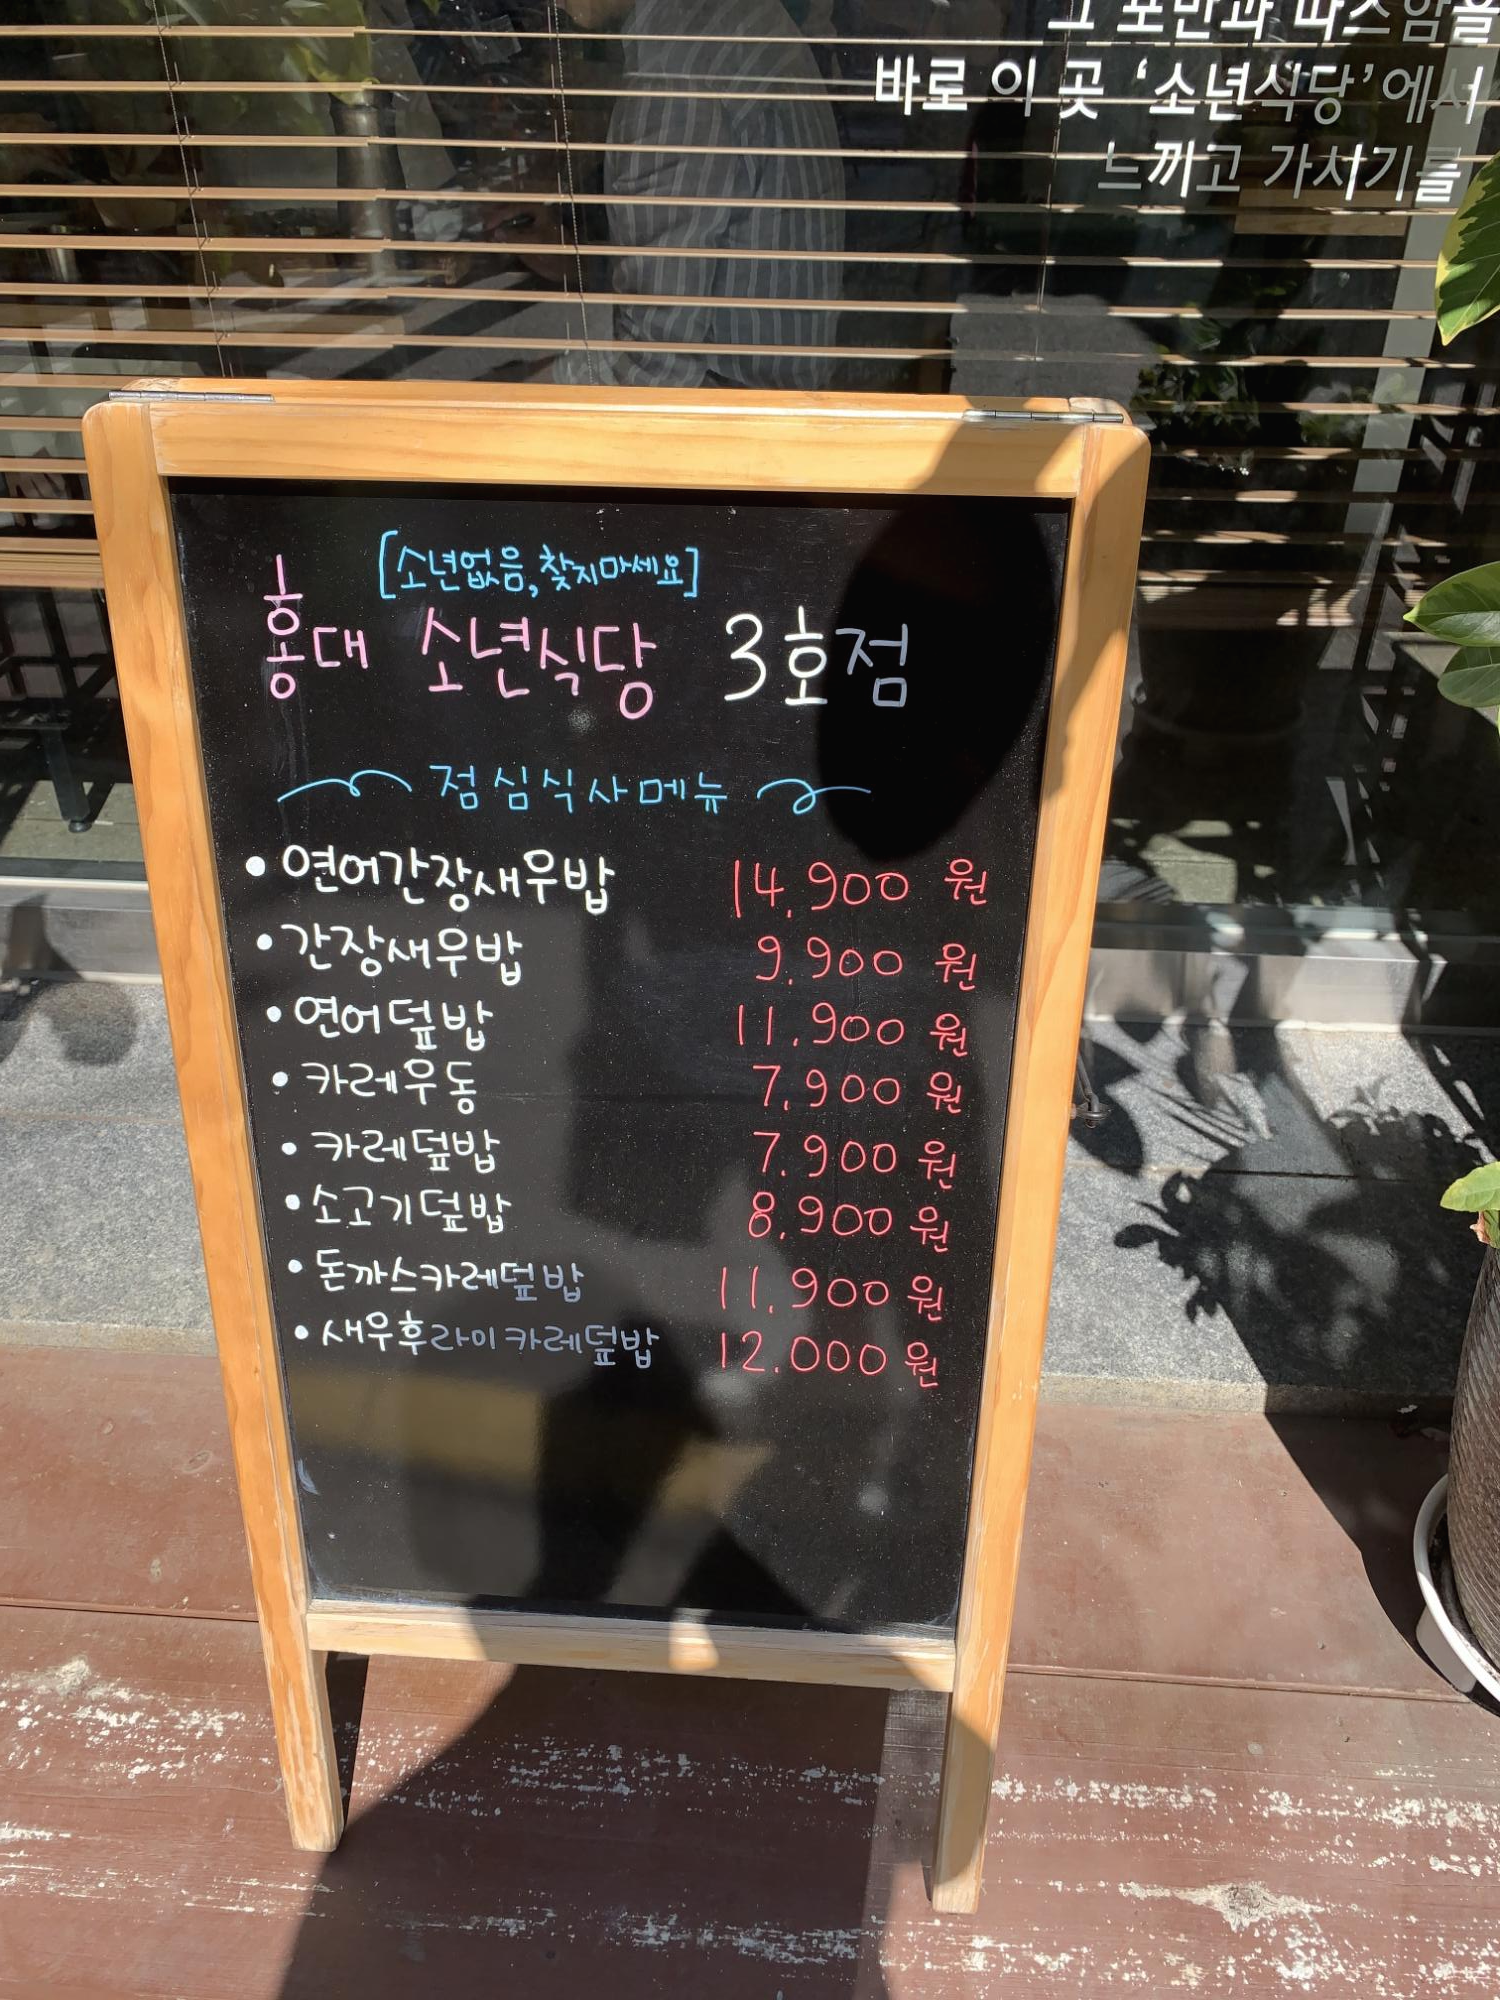 그 포만과 따스함을
바로 이 곳 '소년식당'에서
느끼고 가시기를
[소년없음, 찾지마세요]
홍대 소년식당 3호점
점심식사메뉴
• 연어간장새우밥 14.900 원
• 간장새우밥 9.900 원
• 연어덮밥 11.900 원
• 카레우동 7.900 원
• 카레덮밥 7.900 원
• 소고기덮밥 8.900 원
• 돈까스카레덮밥 11.900 원
• 새우후라이카레덮밥 12.000 원